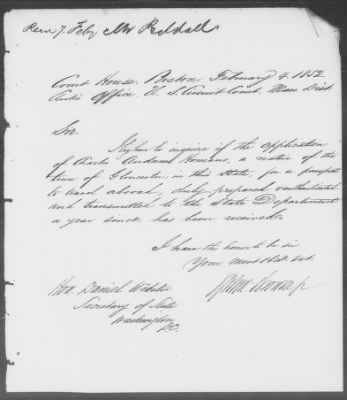 Recd 7. Feby Mr Reddall
Court House, Boston, February 4. 1852
Clerk's Office U. S. Circuit Court, Mass Dist
Sir.
I beg leave to inquire if the application
of Charles Anderson a native of the
town of Gloucester in this state, for a passport
to travel abroad, duly prepared, authenticated
and transmitted to the State Department
a year since has been received.
I have the honor to be sir
Your Most Obdt. Svt.
Hon. Daniel Webster
Secretary of State
Washington
D.C.